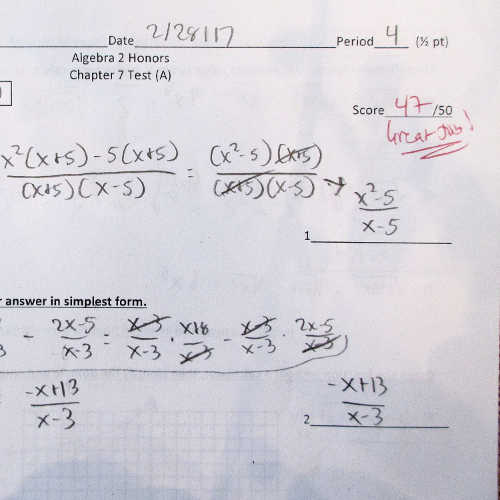 Date 2/28/17 Period 4 (½ pt)
Algebra 2 Honors
Chapter 7 Test (A)
Score 47/50
Great Job!
x²(x+5) - 5(x+5) / (x+5)(x-5) = (x²-5)(x+5) / (x+5)(x-5) → x²-5 / x-5
1
answer in simplest form.
- 2x-5 / x-3 = x-3 / x-3 · x+8 / x-3 - x-3 / x-3 · 2x-5 / x-3
-x+13 / x-3
2 -x+13 / x-3